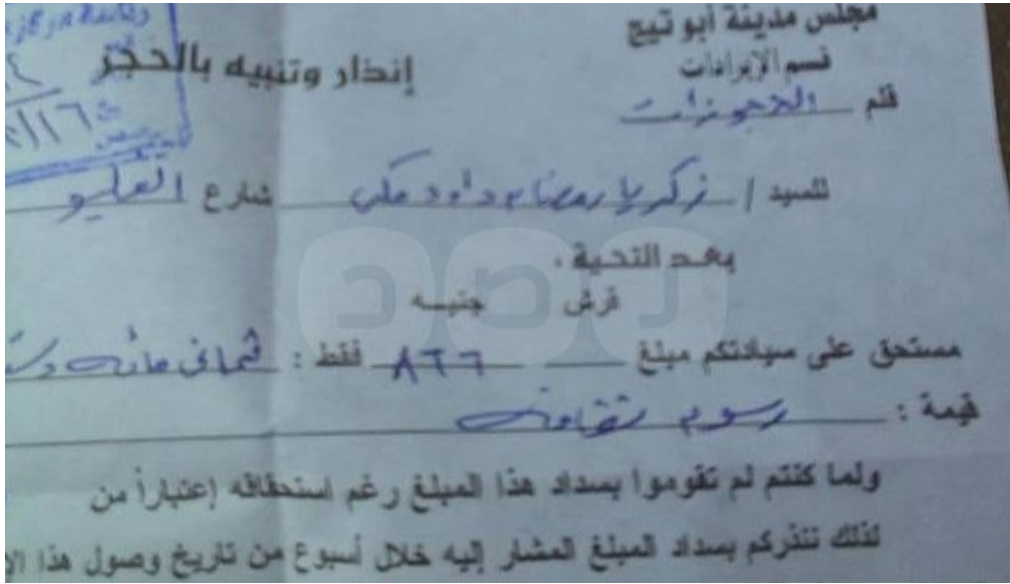 مجلس مدينة أبو تيج
قسم الإيرادات
قلم الحجوزات
إنذار وتنبيه بالحجز
للسيد / زكريا رمضان داود مكي شارع
بعد التحية ،
قرش جنيه
مستحق على سيادتكم مبلغ ٨٦٦ فقط : ثمانى مائه
قيمة : رسوم نظافة
ولما كنتم لم تقوموا بسداد هذا المبلغ رغم استحقاقه إعتباراً من
لذلك ننذركم بسداد المبلغ المشار إليه خلال أسبوع من تاريخ وصول هذا